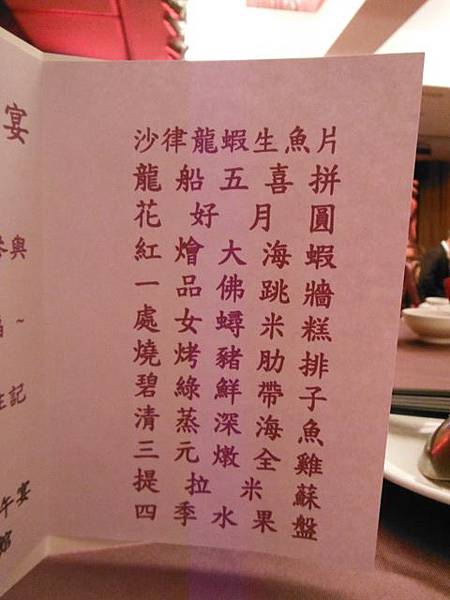 宴
沙律龍蝦生魚片
龍船五喜拼
花好月圓
紅燴大海蝦
一品佛跳牆
處女蟳米糕
燒烤豬肋排
碧綠鮮帶子
清蒸深海魚
三元燉全雞
提拉米蘇
四季水果盤
與
~
記
午宴